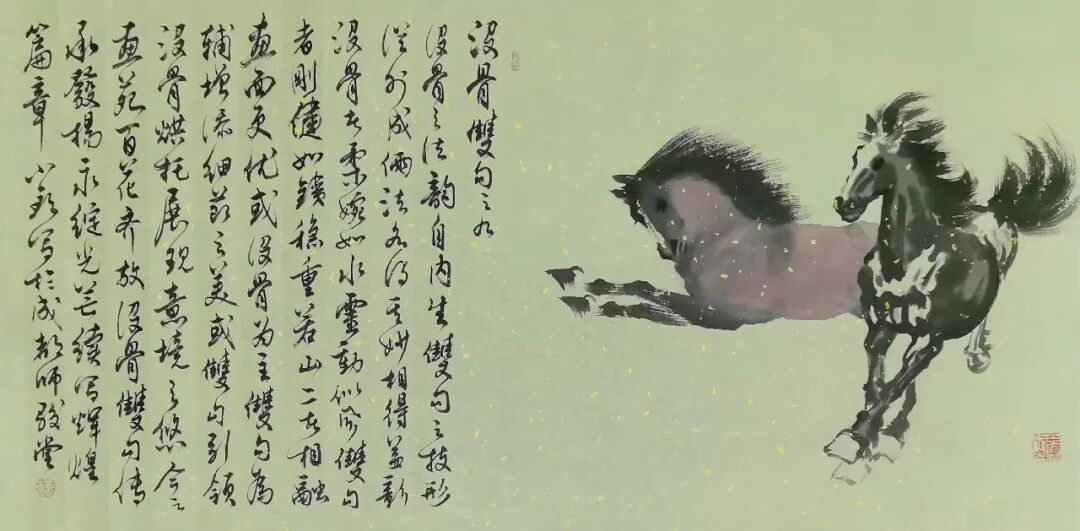 沒骨雙勾之九
沒骨之法韵自内生雙勾之技形
從外成倆法各得其妙相得益彰
沒骨者柔婉如水靈動似風雙勾
者剛健如鐵穩重若山二者相融
畫面更优或沒骨為主雙勾為
辅增添細節之美或雙勾引领
沒骨烘托展現意境之悠今之
畫苑百花齐放沒骨雙勾傳
承發揚永綻光芒續写輝煌
篇章 小 写於成都師駿堂